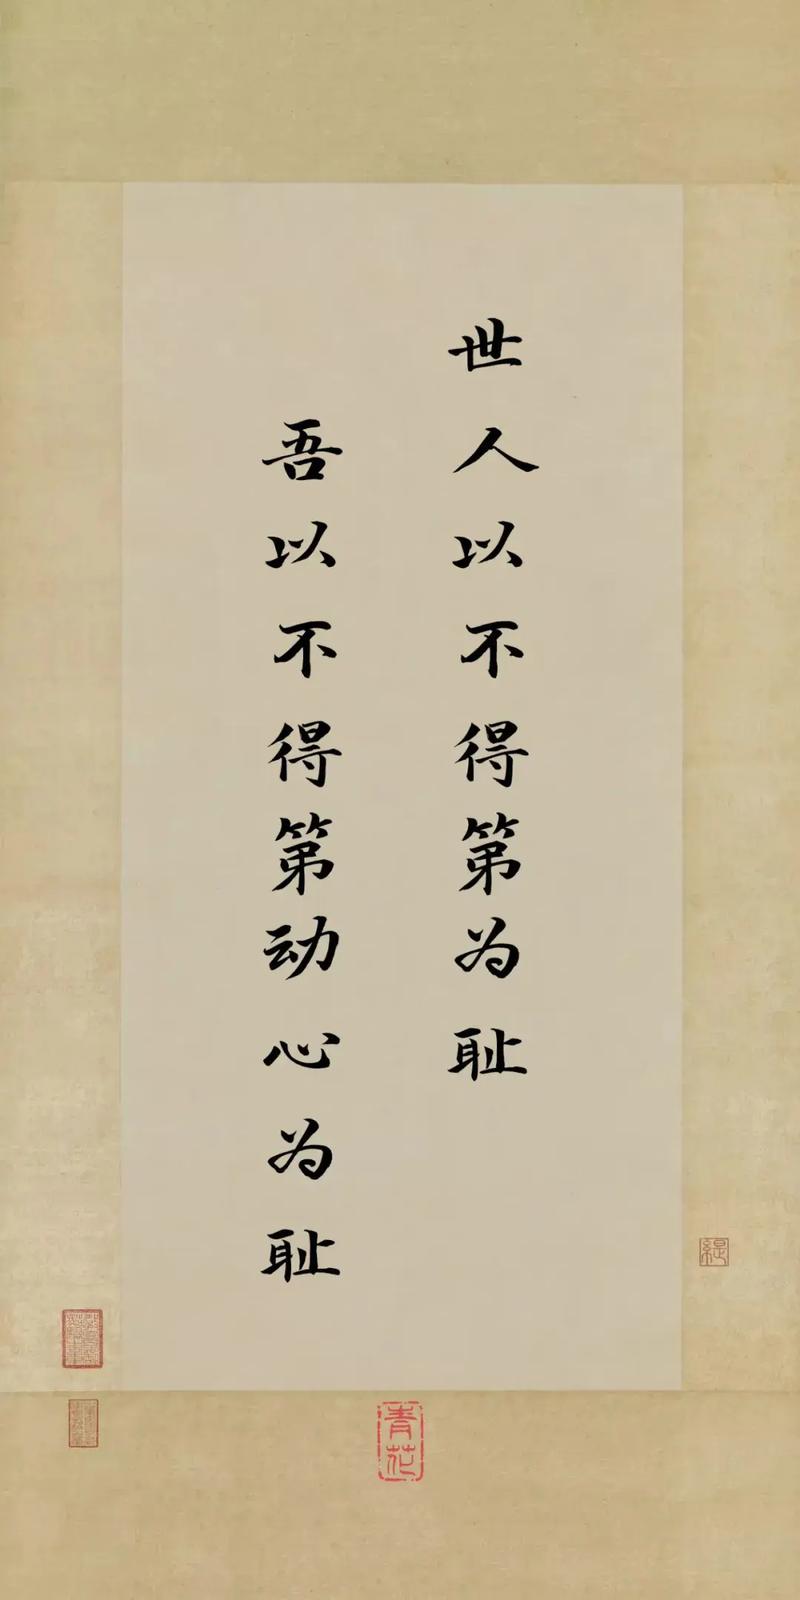 世人以不得第为耻
吾以不得第动心为耻
青花